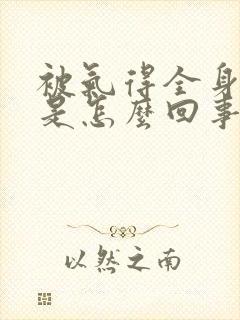 被氣得全身
是怎麼回事
以然之南